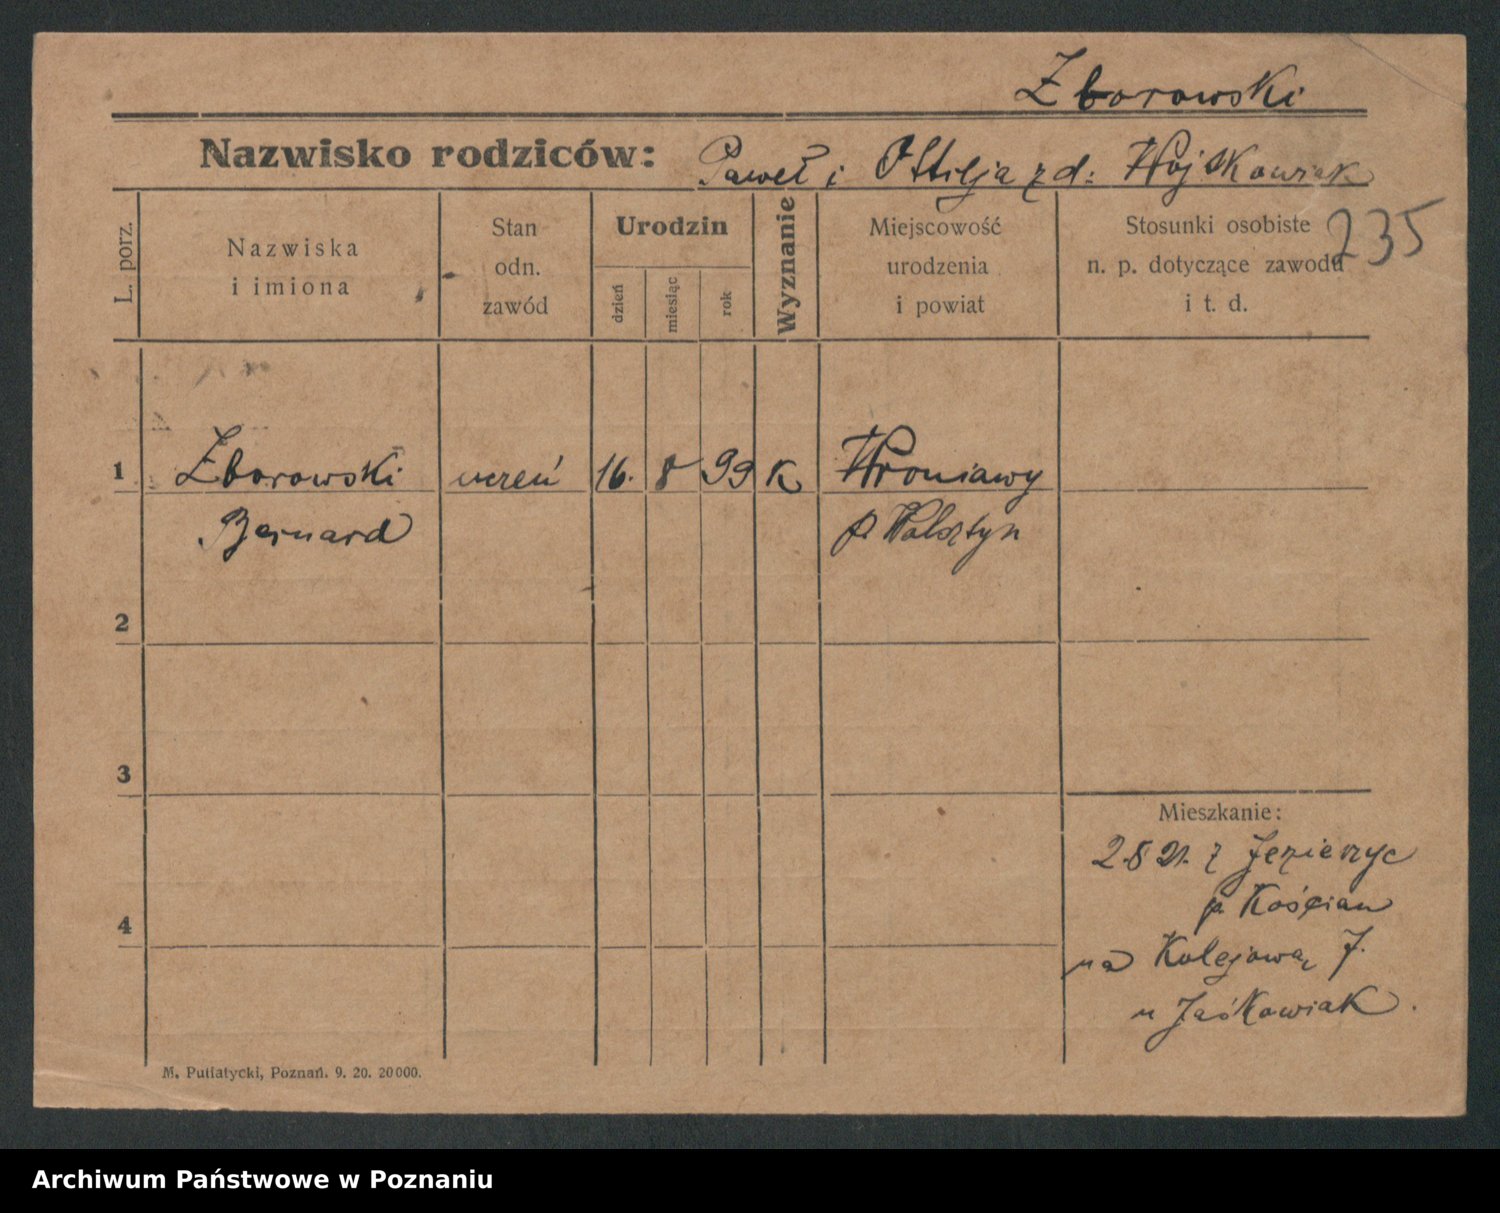 Zborowski
Nazwisko rodziców: Paweł i Ottilja z d: Wojtkowiak
235
L. porz.
Nazwiska i imiona
Stan odn. zawód
Urodzin
dzień
miesiąc
rok
Wyznanie
Miejscowość urodzenia i powiat
Stosunki osobiste n. p. dotyczące zawodu i t. d.
1 Zborowski uczeń 16. 8 99 K Wroniawy
Bernard p. Wolsztyn
2
3
4
Mieszkanie:
2.8 21. z Jezierzyc
p. Kościan
na Kolejową 7.
u Jaśkowiak.
M. Putiatycki, Poznań. 9. 20. 20000.
Archiwum Państwowe w Poznaniu